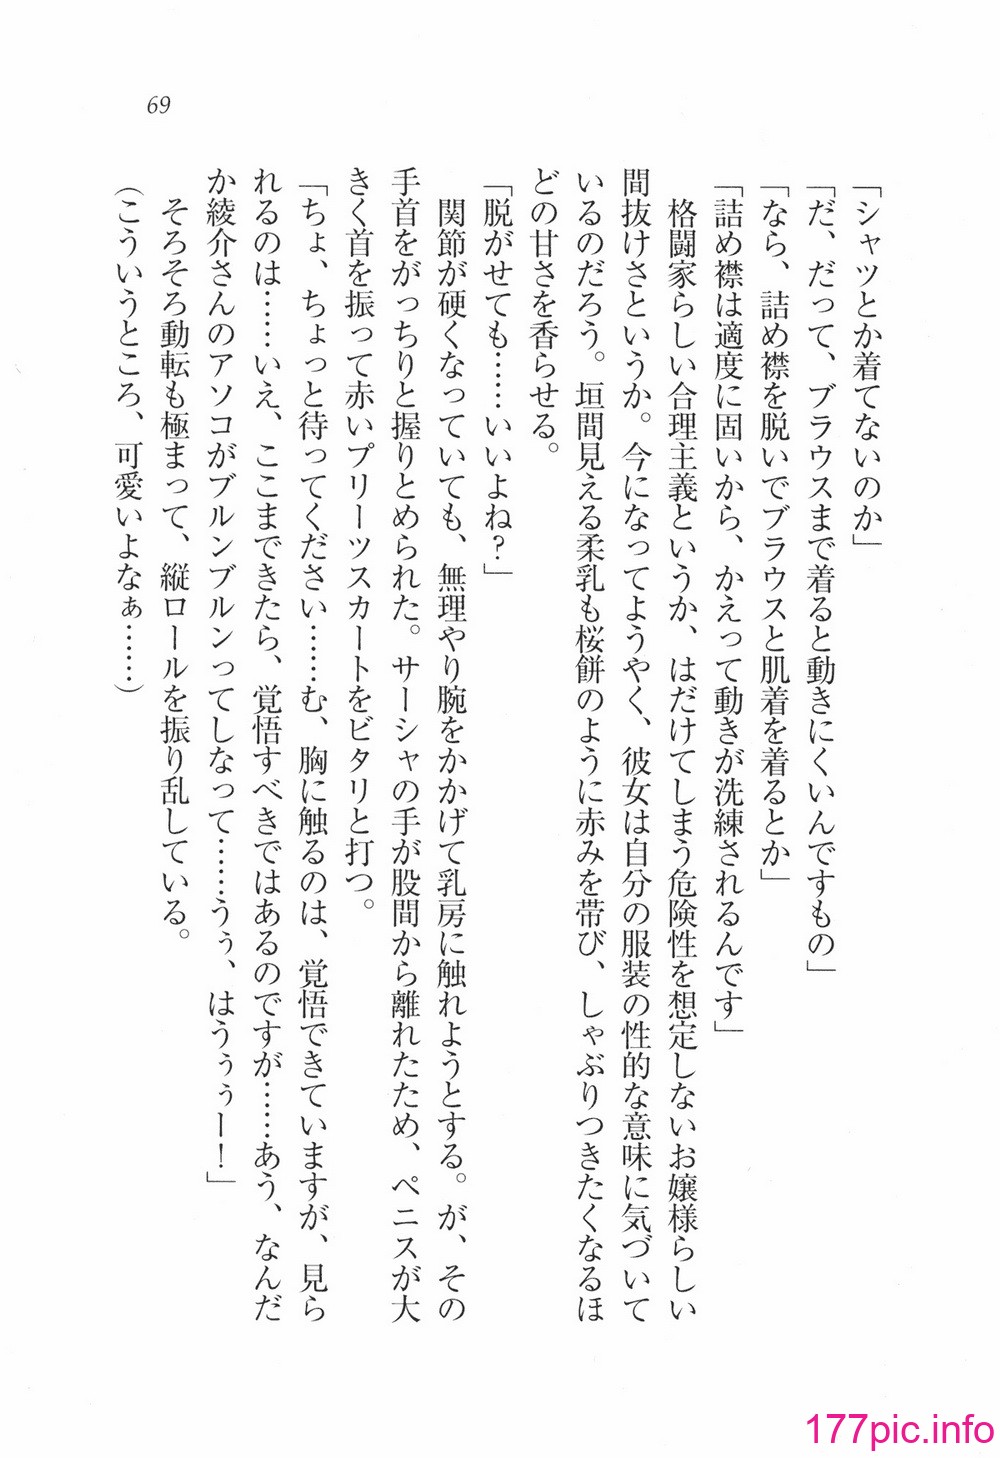 69
「シャツとか着てないのか」
「だ、だって、ブラウスまで着ると動きにくいんですもの」
「なら、詰め襟を脱いでブラウスと肌着を着るとか」
「詰め襟は適度に固いから、かえって動きが洗練されるんです」
格闘家らしい合理主義というか、はだけてしまう危険性を想定しないお嬢様らしい
間抜けさというか。今になってようやく、彼女は自分の服装の性的な意味に気づいて
いるのだろう。垣間見える柔乳も桜餅のように赤みを帯び、しゃぶりつきたくなるほ
どの甘さを香らせる。
「脱がせても……いいよね?」
関節が硬くなっていても、無理やり腕をかかげて乳房に触れようとする。が、その
手首をがっちりと握りとめられた。サーシャの手が股間から離れたため、ペニスが大
きく首を振って赤いプリーツスカートをビタリと打つ。
「ちょ、ちょっと待ってください……む、胸に触るのは、覚悟できていますが、見ら
れるのは……いえ、ここまできたら、覚悟すべきではあるのですが……あう、なんだ
か綾介さんのアソコがブルンブルンってしなって……うぅ、はうぅぅー!」
そろそろ動転も極まって、縦ロールを振り乱している。
(こういうところ、可愛いよなぁ……)
177pic.info